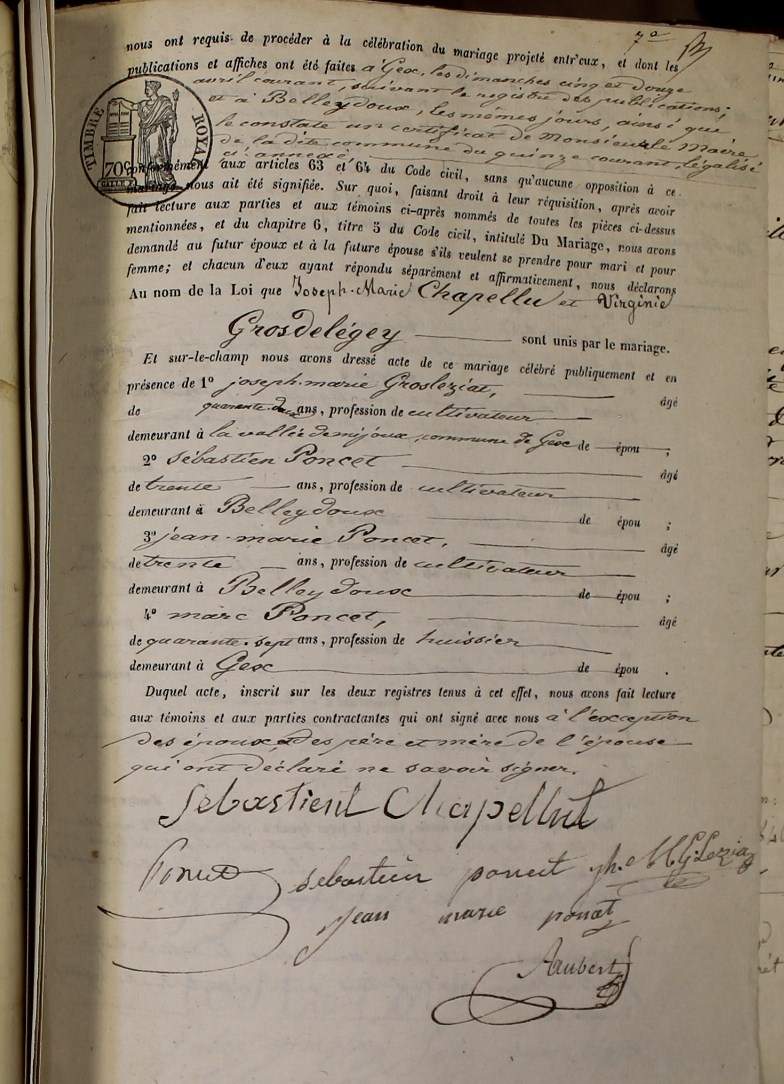 7e
nous ont requis de procéder à la célébration du mariage projeté entr'eux, et dont les
publications et affiches ont été faites à Gex, les dimanches cinq et douze
avril courant, suivant le registre des publications;
et à Belleydoux, les mêmes jours, ainsi que
le constate un certificat de Monsieur le Maire
de la dite commune du quinze courant, légalisé
ci annexé,
TIMBRE ROYAL
70c
conformément aux articles 63 et 64 du Code civil, sans qu'aucune opposition à ce
mariage nous ait été signifiée. Sur quoi, faisant droit à leur réquisition, après avoir
fait lecture aux parties et aux témoins ci-après nommés de toutes les pièces ci-dessus
mentionnées, et du chapitre 6, titre 5 du Code civil, intitulé Du Mariage, nous avons
demandé au futur époux et à la future épouse s'ils veulent se prendre pour mari et pour
femme; et chacun d'eux ayant répondu séparément et affirmativement, nous déclarons
Au nom de la Loi que Joseph-Marie Chapellu et Virginie
Grosdelégey sont unis par le mariage.
Et sur-le-champ nous avons dressé acte de ce mariage célébré publiquement et en
présence de 1º joseph-marie Grosleziat, âgé
de quarante-deux ans, profession de cultivateur
demeurant à la vallée de mijoux, commune de Gex de épou ;
2º Sébastien Poncet âgé
de trente ans, profession de cultivateur
demeurant à Belleydoux de épou ;
3º jean-marie Poncet, âgé
de trente ans, profession de cultivateur
demeurant à Belleydoux de épou ;
4º marc Poncet, âgé
de quarante-sept ans, profession de huissier
demeurant à Gex de épou .
Duquel acte, inscrit sur les deux registres tenus à cet effet, nous avons fait lecture
aux témoins et aux parties contractantes qui ont signé avec nous à l'exception
des époux et des père et mère de l'épouse
qui ont déclaré ne savoir signer.
Sebastient Chapellut
Poncet sebastien poncet jh. M GLezia
jean marie ponat
Aubert